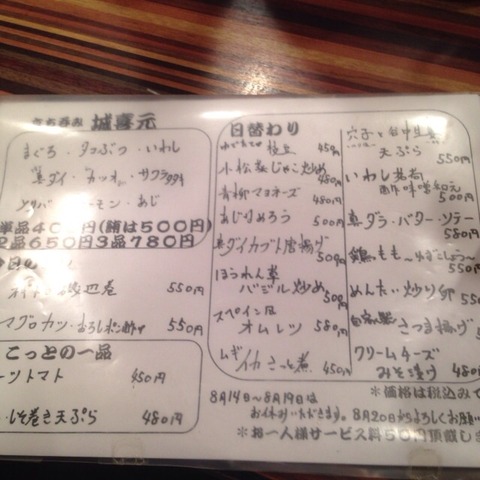 立ち呑み 城喜元
まぐろ・タコぶつ・いわし
真ダイ・カツオ・サクラダタキ
サーモン・あじ
単品400円(鮪は500円)
2品650円3品780円
磯辺巻 550円
マグロカツ・おろしポン酢 550円
こっとの一品
ーツトマト 450円
しそ巻き天ぷら 480円
日替わり
ゆでたて枝豆 450円
小松菜じゃこ炒め 480円
青柳マヨネーズ 480円
あじなめろう 500円
真ダイカブト唐揚げ 500円
ほうれん草
バジル炒め 500円
スペイン風
オムレツ 580円
ムギイカさっと煮 450円
穴子と
天ぷら 550円
いわし
500円
真ダラ・バターソテー 580円
鶏もも〜ゆずこしょう〜 550円
めんたい炒り卵 550円
自家製 さつま揚げ 550円
クリームチーズ
みそ漬け 480円
8月14日〜8月19日は
お休みいただきます。8月20日からよろしくお願い
*価格は税込みで
*お一人様サービス料50円頂戴しま